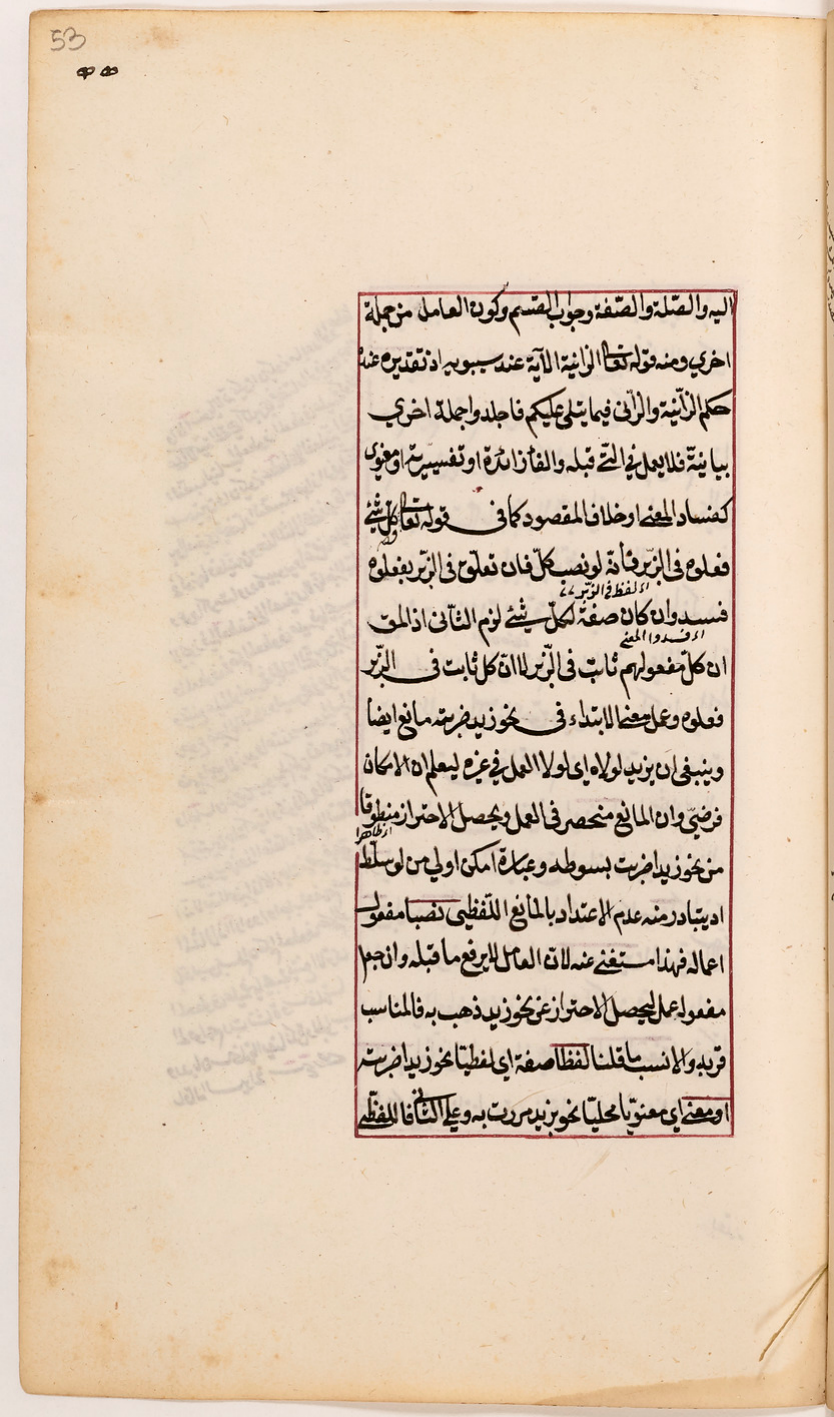 53
اليه والصّلة والصّفة وجواب القسم وكون العامل من جملة
اخري ومنه قوله تعا الزانية الآية عند سيبويه اذ تقديره عنده
حكم الزّانية والزّانى فيما يتلى عليكم فاجلدوا جملة اخري
بيانيّة فلا يعمل في التى قبله والفا زائدة او تفسيريّة او معنوى
كفساد المعنى او خلاف المقصود كما فى قوله تعا وكل شئ
فعلوه فى الزّبر فأنّه لو نصب كلّ فان تعلّق فى الزّبر بفعلوه
اى لفظ في الزبر
فسد وان كان صفة لكلّ شئ لزم الثّانى اذ المق
اى فسدوا المعنى
ان كلّ مفعولهم ثابت فى الزّبر لا انّ كل ثابت فى الزّبر
فعلوه وعمل معنى الابتداء فى نحو زيد ضربته مانع ايضا
وينبغى ان يزيد لولاه اى لولا العمل في غيره ليعلم ان الامكان
فرضيّ وان المانع منحصر فى العمل ويحصل الاحتراز منطوقا
اى ظاهرا
من نحو زيدا ضربت بسوطه وعبارة امكن اولي من لو سلّط
اد يتبادر منه عدم الاعتداد بالمانع اللّفظيى نصبا مفعول
اعماله فهذا مستغنى عنه لانّ العامل لا يرفع ما قبله وان جعل
مفعوله عمل ليحصل الاحتراز عن نحو زيد ذهب به فالمناسب
قريد والانسب ما قلنا لفظا صفة اى لفظيّا نحو زيدا ضربته
او معنى اى معنويّا محليّا نحو بزيد مررت به وعلى الثّانى فاللفظّى